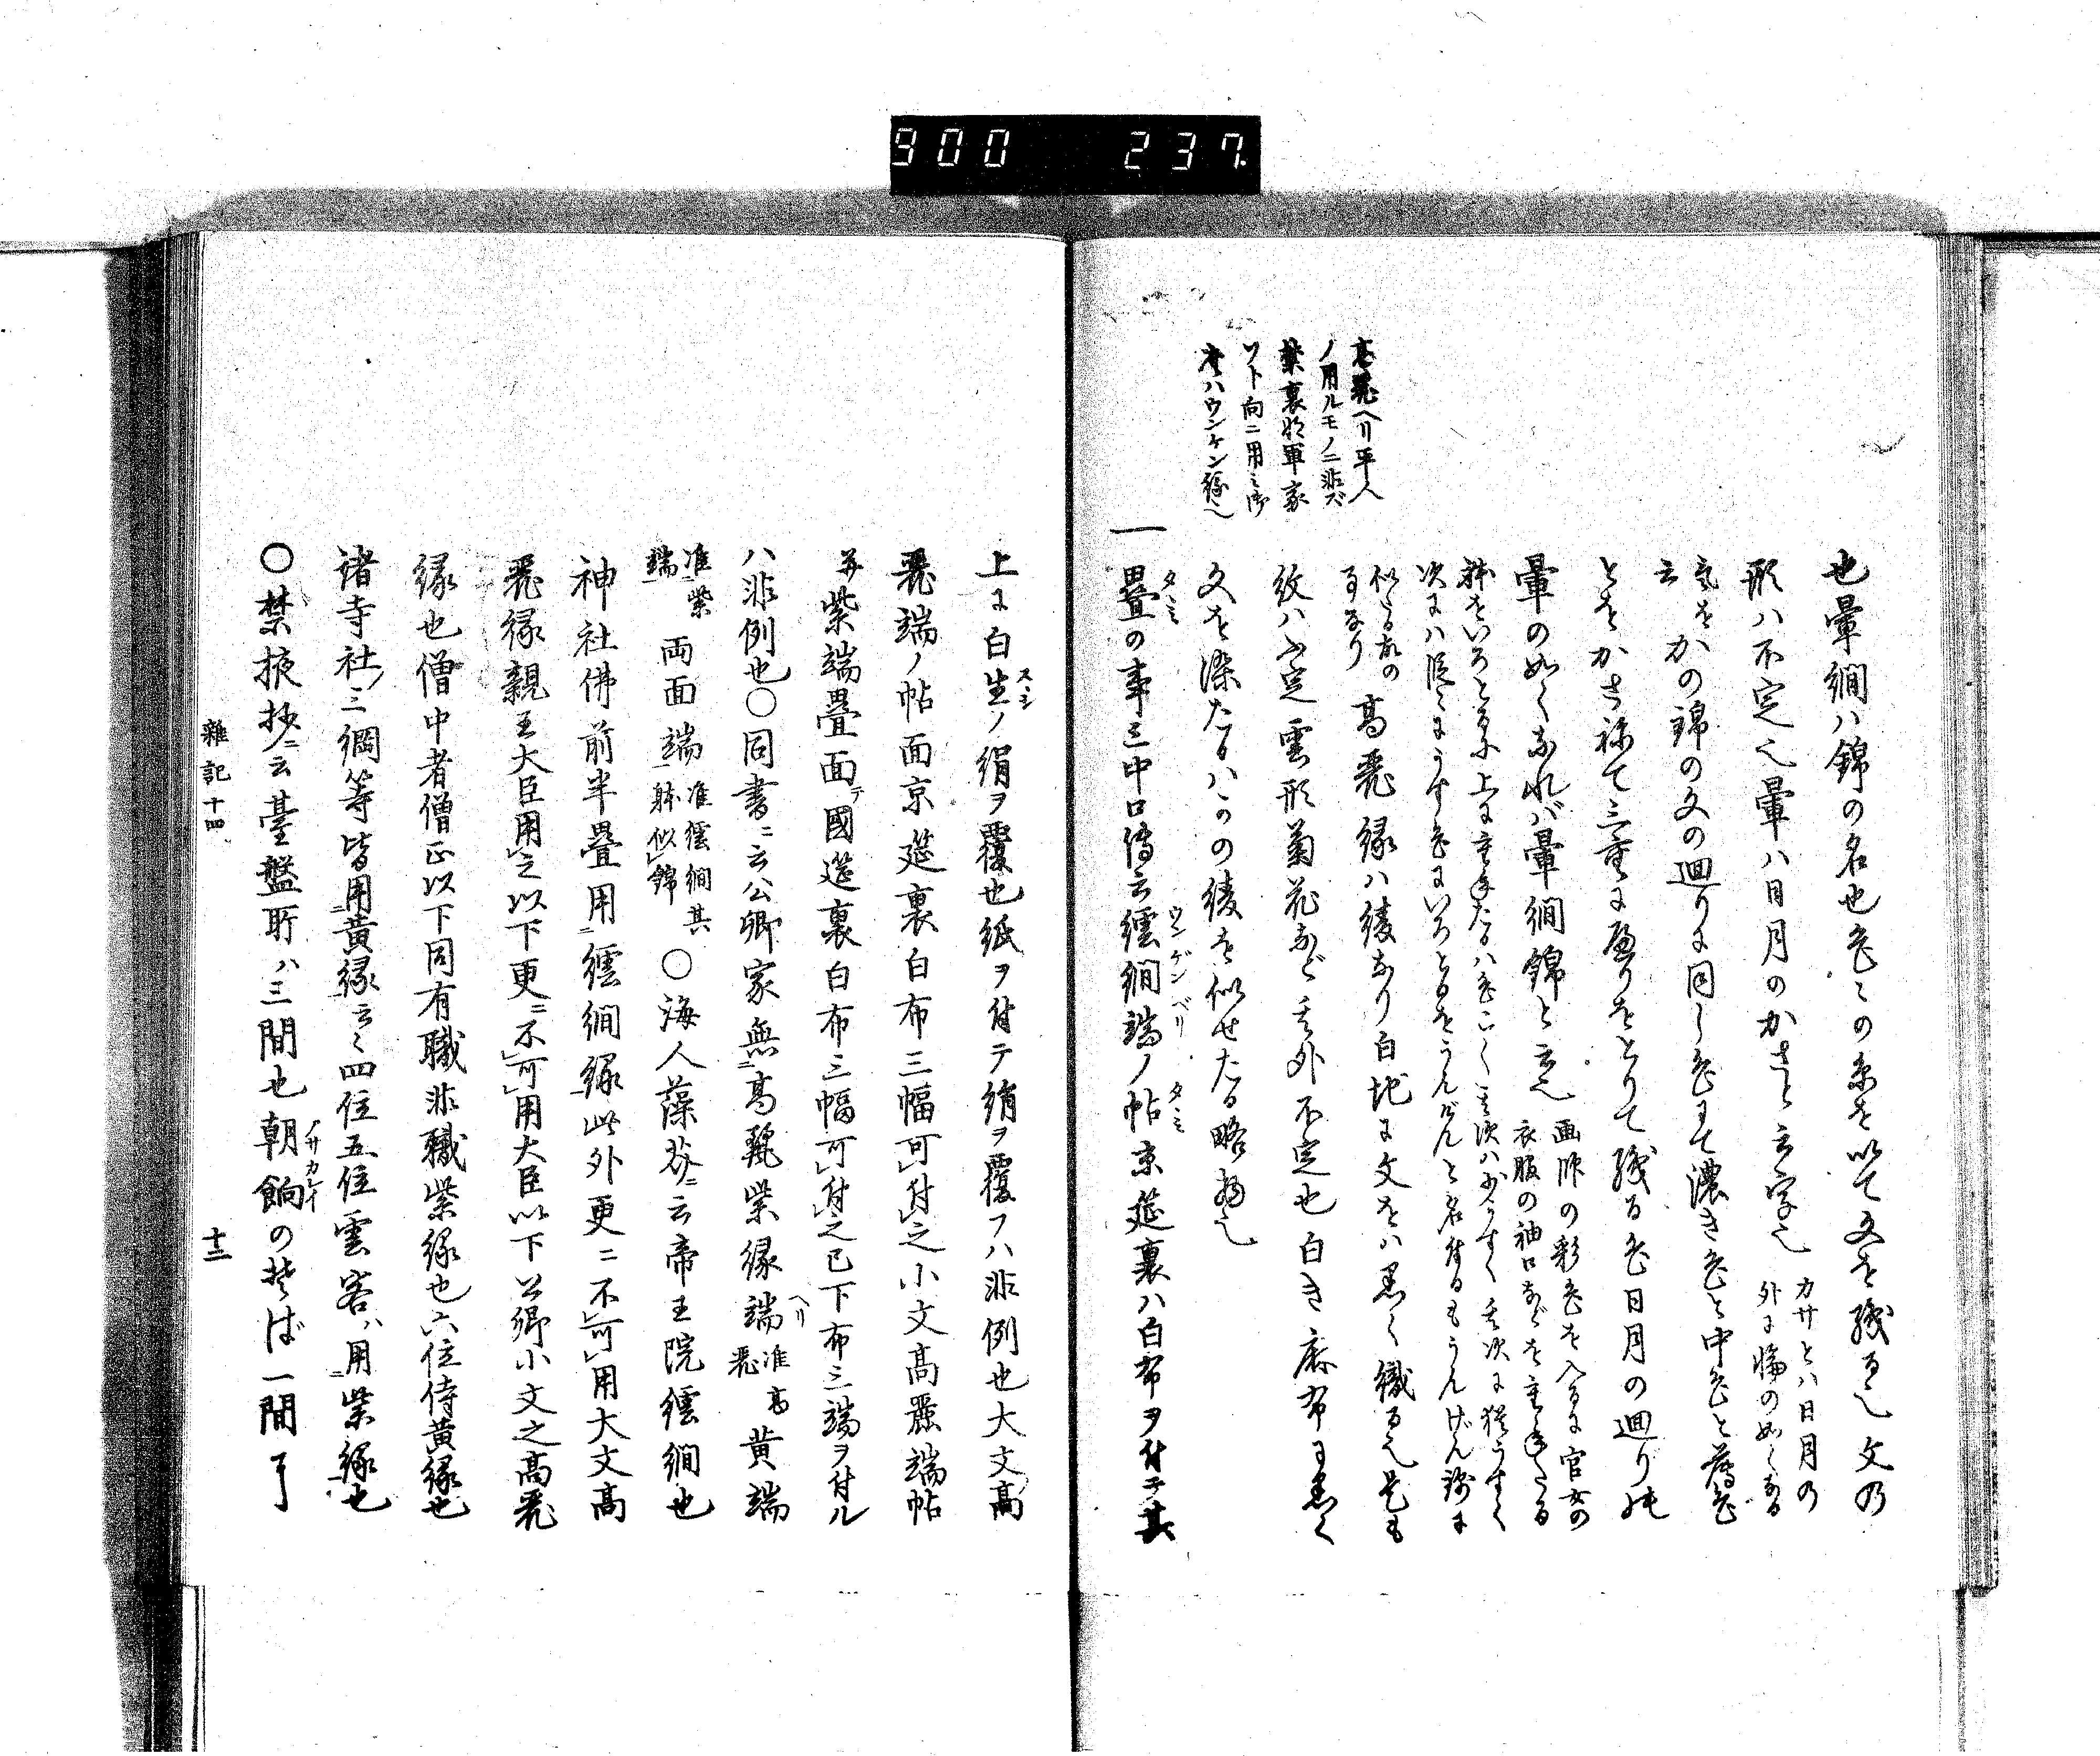 900 237
高麗ヘリ平人
ノ用ルモノニ非ズ
禁裏将軍家
ハウンケン縁
也暈繝ハ錦の名也色々の糸を以て文を織る也文乃
形ハ不定也暈ハ日月のかさと云字也
カサとハ日月の
外に輪の如くなる
気を
云
かの錦の文の廻りに同し色にて濃き色と中色と薄色
とをかさ祢て三重に廻りをとりて織る色日月の廻り能
暈の如くなれバ暈繝錦と云也
画師の彩色を入るに官女の
衣服の袖口などを重
次にハ段々にうす色にいろとるをうんげんと名付るもうんげん錦に
似たる故の
高麗縁ハ綾なり白地に文をハ黒く織る也是も
紋ハ不定雲形菊花など其外不定也白き麻布に黒く
文を染たるハかの綾を似せたる略物也
一畳の事三中口傳云繧繝端ノ帖京莚裏ハ白布ヲ付テ其
タヽミ
ウンゲンベリ
タヽミ
上に白生ノ絹ヲ覆也紙ヲ付テ絹ヲ覆フハ非例也大文高
スヽシ
麗端ノ帖面京莚裏白布三幅可付之小文高麗端帖
并紫端畳面テ國莚裏白布三幅可付之已下布三端ヲ付ル
ハ非例也〇同書ニ云公卿家無高麗紫縁端
ヘリ
准高
麗
黄端
准紫
端
両面端
准繧繝其
躰似錦
〇海人藻芥ニ云帝王院繧繝也
神社佛前半畳用繧繝縁此外更ニ不可用大文高
麗縁親王大臣用之以下更ニ不可用大臣以下公卿小文之高麗
縁也僧中者僧正以下同有職非職紫縁也六位侍黄縁也
諸寺社三綱等皆用黄縁云々四位五位雲客ハ用紫縁也
〇禁掖抄ニ云臺盤所ハ三間也朝餉のそば一間
ノサカレイ
雜記十四
十二